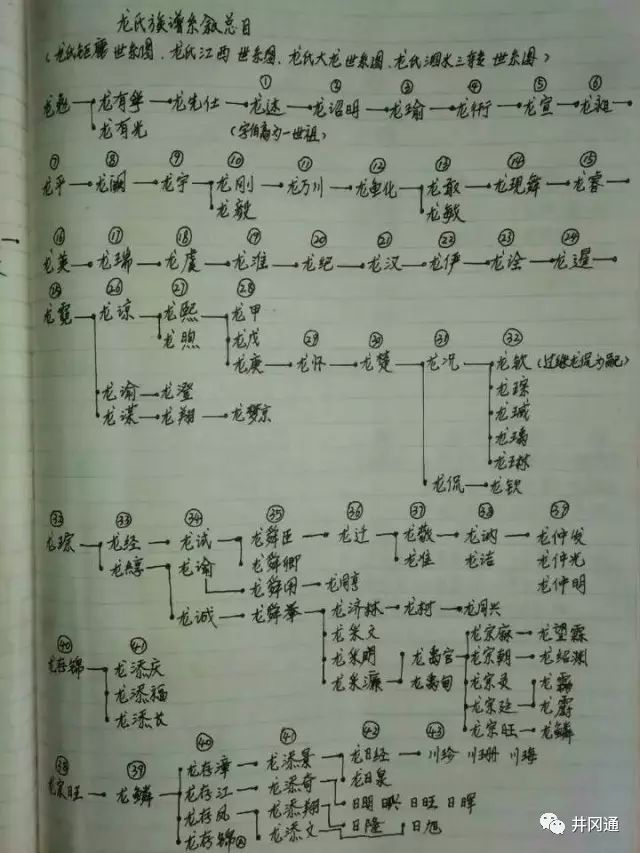 龙氏族谱系叙总目
(龙氏 世系图、龙氏江西世系图、龙氏大龙世系图、龙氏泗水三 世系图)
① ② ③ ④ ⑤ ⑥
龙 龙有 龙先仕 龙述 龙沼明 龙瑜 龙 龙宣 龙昶
龙有光 (字伯高为一世祖)
⑦ ⑧ ⑨ ⑩ ⑪ ⑫ ⑬ ⑭ ⑮
龙平 龙 龙宇 龙刚 龙万川 龙鱼化 龙敢 龙现舞 龙睿
龙毅 龙敏
⑯ ⑰ ⑱ ⑲ ⑳ ㉑ ㉒ ㉓ ㉔
龙美 龙瑞 龙虞 龙淮 龙纪 龙汉 龙伊 龙诠 龙暹
㉖ ㉗ ㉘
龙霓 龙谅 龙熙 龙甲
龙煦 龙戊
㉙ ㉚ ㉛ ㉜
龙庚 龙怀 龙楚 龙况 龙钦
龙谕 龙澄 龙琛
龙 龙翔 龙梦京 龙瑊
龙璃
龙琳
龙侃 龙钦
㉜ ㉝ ㉞ ㉟ ㊱ ㊲ ㊳ ㊴
龙琮 龙经 龙试 龙舜臣 龙迁 龙敬 龙讷 龙仲发
龙淳 龙谕 龙舜卿 龙准 龙洁 龙仲光
龙舜用 龙周亨 龙仲明
龙诚 龙舜华 龙济林 龙树 龙周兴
龙朱文 龙宗麻 龙望霖
㊵ ㊶
龙存锦 龙添庆 龙朱明 龙禹官 龙宗朝 龙绍渊
龙添福 龙朱濂 龙禹甸 龙宗 龙霭
龙添长 龙宗廷 龙霨
龙宗旺 龙鳞
㊳ ㊴ ㊵ ㊶ ㊷ ㊸
龙存漳 龙添景 龙日经 川珍 川珊 川海
龙宗旺 龙鳞 龙存江 龙添奇 龙日泉
龙存凤 龙添翔 日明 日兴 日旺 日晖
龙存锦 龙添文 日隆 日旭
井冈通